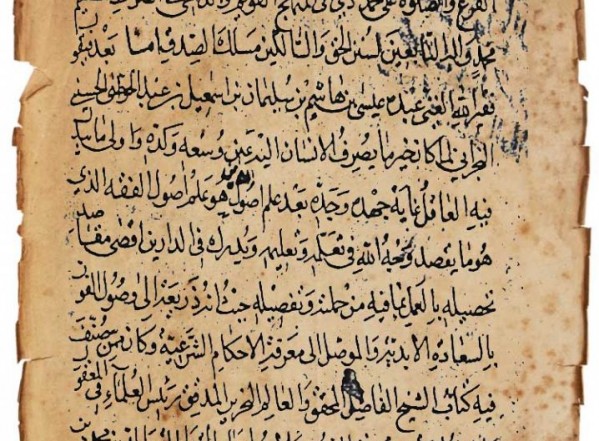 محمد واله التابعين لسنن الحق والسالكين مسلك الصدق اما بعد فيقو
فقر الله الغني عبده عيسى بن هاشم بن سليمان بن اسمعيل بن عبد الحسيني
البحراني لما كان خير ما يصرف الانسان اليه عين وسعه وكده واولى ما يبذل
فيه العاقل غاية جهده وجده بعد علم اصول الدين هو علم اصول الفقه الذي
هو ما يقصد وجه الله في تعلمه وتعليمه ويدرك في الدارين اقصى مقاصد
تحصيله بالعمل بما فيه من جملته وتفصيله حيث انه ذريعة الى وصول الفوز
بالسعادة الابدية والموصل الى معرفة الاحكام الشرعية وكان من صنف
فيه كتاب الشيخ الفاضل المحقق والعالم النحرير المدقق رئيس العلماء في المعقول